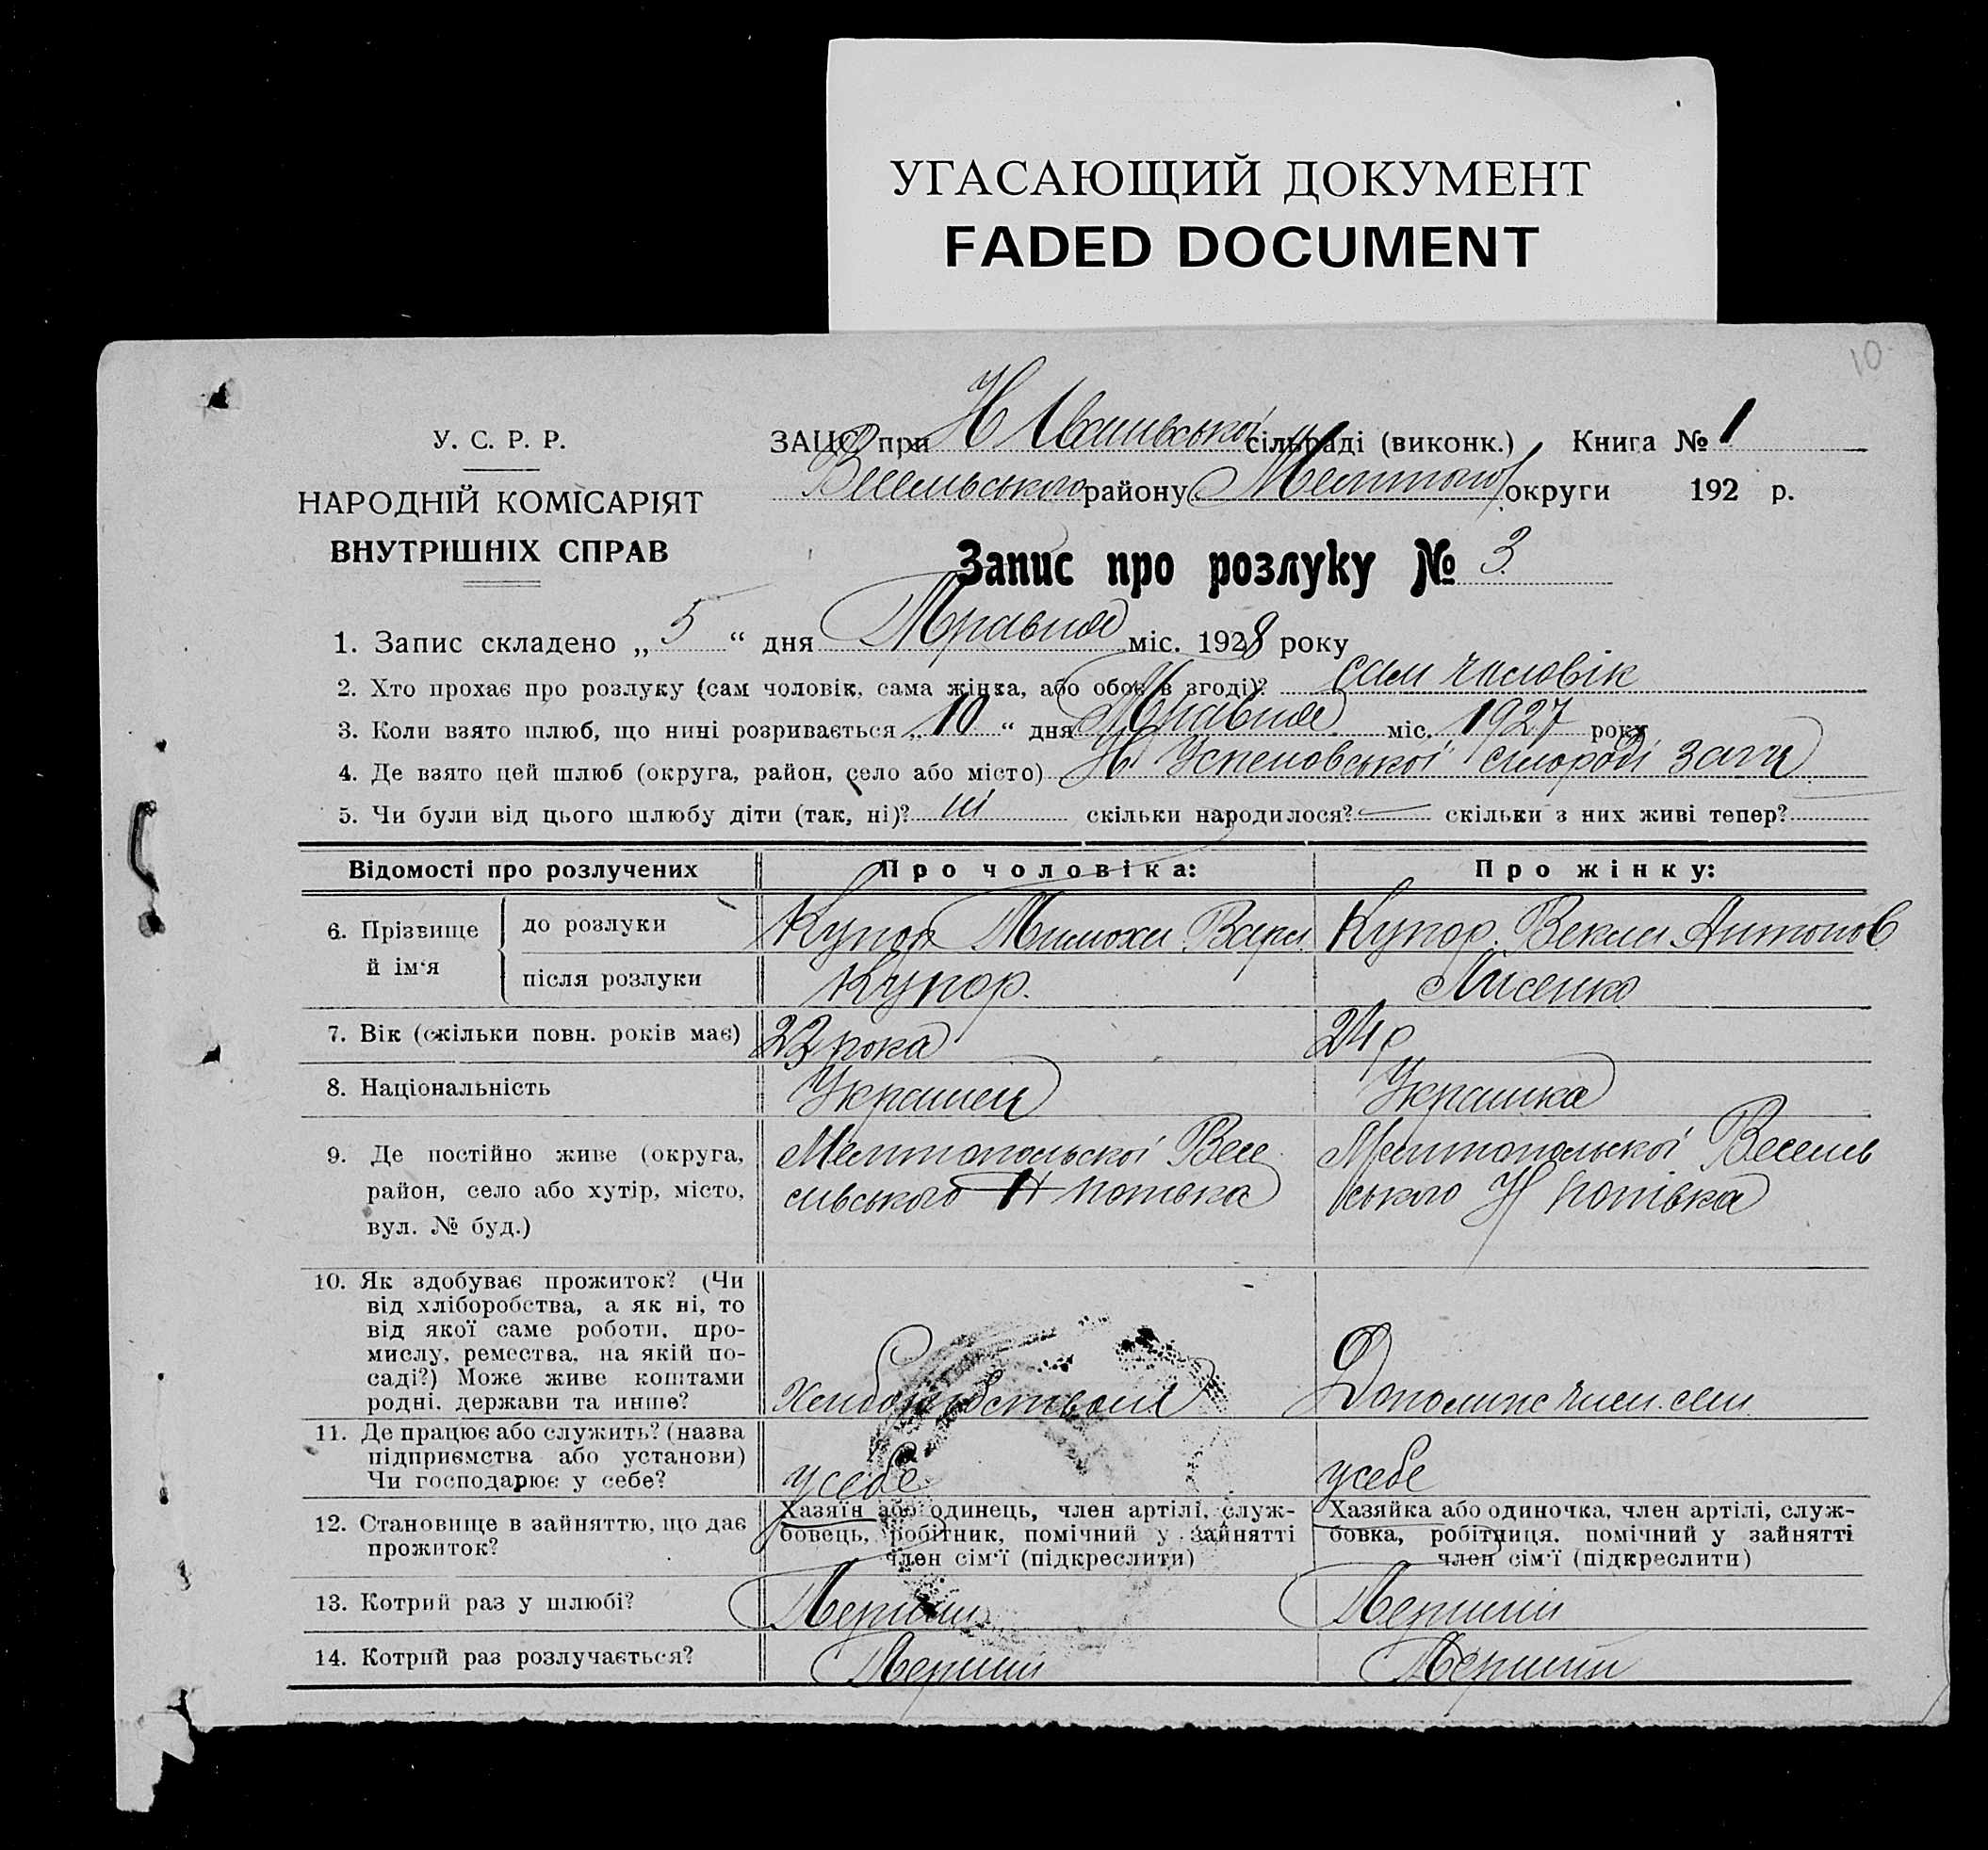 УГАСАЮЩИЙ ДОКУМЕНТ
FADED DOCUMENT
10
У. С. Р. Р.
НАРОДНІЙ КОМІСАРІЯТ
ВНУТРІШНІХ СПРАВ
ЗАЦС при Н сільраді (виконк.) Книга № 1
Веселівського району Мелітопол округи 192 р.
Запис про розлуку № 3
1. Запис складено „ 5 “ дня Травня міс. 1928 року
2. Хто прохає про розлуку (сам чоловік, сама жінка, або обоє в згоді)? сам чиловік
3. Коли взято шлюб, що нині розривається „ 10 “ дня Травня міс. 1927 року
4. Де взято цей шлюб (округа, район, село або місто) Н Успеновської загц
5. Чи були від цього шлюбу діти (так, ні)? ні скільки народилося? — скільки з них живі тепер?
Відомості про розлучених
Про чоловіка:
Про жінку:
6. Прізвище й ім‘я
до розлуки
Купор Тимоха Вари
Купор. Векла Антонов
після розлуки
Купор.
Лисенко
7. Вік (скільки повн. років має)
22 рока
24 р
8. Національність
Украінец
Украінка
9. Де постійно живе (округа,
район, село або хутір, місто,
вул. № буд.)
Мелітопольскоі Весе
лівського Н
Мелітопольскоі Веселів
ського Н
10. Як здобуває прожиток? (Чи
від хліборобства, а як ні, то
від якої саме роботи, про-
мислу, ремества, на якій по-
саді?) Може живе коштами
родні, держави та инше?
Хлиборобством
Допомине член. сем
11. Де працює або служить? (назва
підприємства або установи)
Чи господарює у себе?
усебе
усебе
12. Становище в зайняттю, що дає
прожиток?
Хазяїн або одинець, член артілі, служ-
бовець, робітник, помічний у зайнятті
член сім‘ї (підкреслити)
Хазяйка або одиночка, член артілі, служ-
бовка, робітниця, помічний у зайнятті
член сім‘ї (підкреслити)
13. Котрий раз у шлюбі?
Перший
Перший
14. Котрий раз розлучається?
Перший
Перший